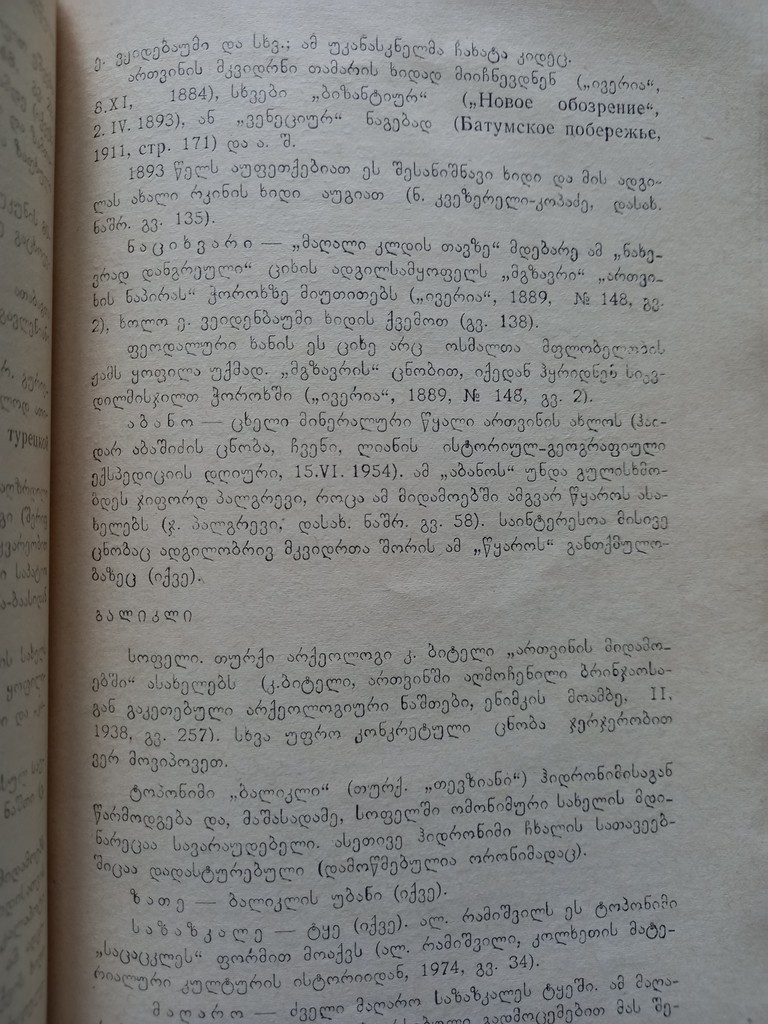 ე. ვეიდებაუმი და სხვ.; ამ უკანასკნელმა ჩახატა კიდეც.
ართვინის მკვიდრნი თამარის ხიდად მიიჩნევდნენ („ივერია“,
8.XI, 1884), სხვები „ბიზანტიურ“ („Новое обозрение“,
2. IV. 1893), ან „ვენეციურ“ ნაგებად (Батумское побережье,
1911, стр. 171) და ა. შ.
1893 წელს აუფეთქებიათ ეს შესანიშნავი ხიდი და მის ადგი-
ლას ახალი რკინის ხიდი აუგიათ (ნ. კვეზერელი-კოპაძე, დასახ.
ნაშრ. გვ. 135).
ნაციხვარი — „მაღალი კლდის თავზე“ მდებარე ამ „ნახე-
ვრად დანგრეული“ ციხის ადგილსამყოფელს „მგზავრი“ „ართვი-
ნის ნაპირას“ ჭოროხზე მიუთითებს („ივერია“, 1889, № 148, გვ.
2), ხოლო ე. ვეიდენბაუმი ხიდის ქვემოთ (გვ. 138).
ფეოდალური ხანის ეს ციხე არც ოსმალთა მფლობელობის
ჟამს ყოფილა უქმად. „მგზავრის“ ცნობით, იქედან ჰყრიდნენ სიკვ-
დილმისჯილთ ჭოროხში („ივერია“, 1889, № 148, გვ. 2).
აბანო — ცხელი მინერალური წყალი ართვინის ახლოს (ჰაი-
დარ აბაშიძის ცნობა, ჩვენი, ლიანის ისტორიულ-გეოგრაფიული
ექსპედიციის დღიური, 15.VI. 1954). ამ „აბანოს“ უნდა გულისხმო-
ბდეს ჯიფორდ პალგრევი, როცა ამ მიდამოებში ამგვარ წყაროს ასა-
ხელებს (ჯ. პალგრევი, დასახ. ნაშრ. გვ. 58). საინტერესოა მისივე
ცნობაც ადგილობრივ მკვიდრთა შორის ამ „წყაროს“ განთქმულო-
ბაზეც (იქვე).
ბალიკლი
სოფელი. თურქი არქეოლოგი კ. ბიტელი „ართვინის მიდამო-
ებში“ ასახელებს (კ.ბიტელი, ართვინში აღმოჩენილი ბრინჯაოსა-
გან გაკეთებული არქეოლოგიური ნაშთები, ენიმკის მოამბე, II,
1938, გვ. 257). სხვა უფრო კონკრეტული ცნობა ჯერჯერობით
ვერ მოვიპოვეთ.
ტოპონიმი „ბალიკლი“ (თურქ. „თევზიანი“) ჰიდრონიმისაგან
წარმოდგება და, მაშასადამე, სოფელში ომონიმური სახელის მდი-
ნარეცაა სავარაუდებელი. ასეთივე ჰიდრონიმი ჩხალის სათავეებ-
შიცაა დადასტურებული (დამოწმებულია ორონიმადაც).
ზათე — ბალიკლის უბანი (იქვე).
საზაზკალე — ტყე (იქვე). ალ. რამიშვილს ეს ტოპონიმი
„საცაცკლეს“ ფორმით მოაქვს (ალ. რამიშვილი, კოლხეთის მატე-
რიალური კულტურის ისტორიიდან, 1974, გვ. 34).
მაღარო — ძველი მაღარო საზაზკალეს ტყეში. ამ მაღა-
გადმოცემებით მას შე-
турецкой